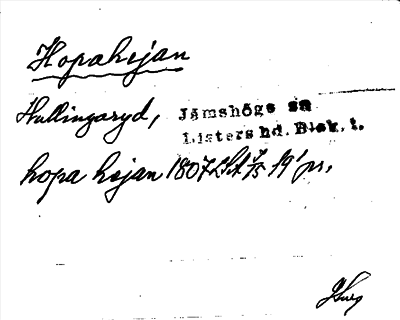 Hopahejan
Hallingaryd, Jämshögs sn
Listers hd. Blek. l.
hopa hejan 1807 LSA 19 pr.